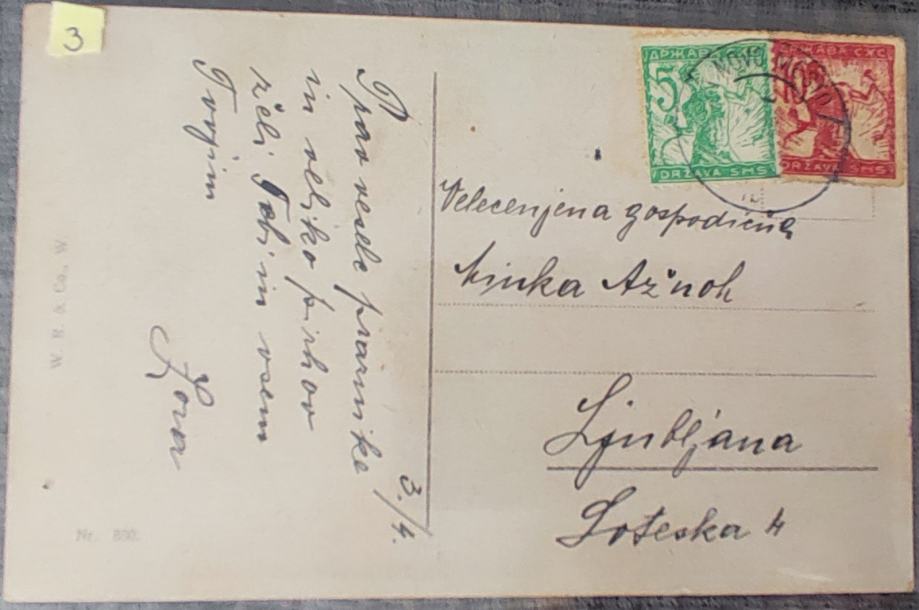 3
Prav vesele praznike
in veliko pirhov
želi Tebi in vsem
Tvojim
Zora
3./4.
ДРЖАВА СХС
5
DRŽAVA SHS
ДРЖАВА СХС
DRŽAVA SHS
NOVO MESTO
Velecenjena gospodična
Minka Ažnoh
Ljubljana
Soteska 4
W. R. & Co., W.
Nr. 830.